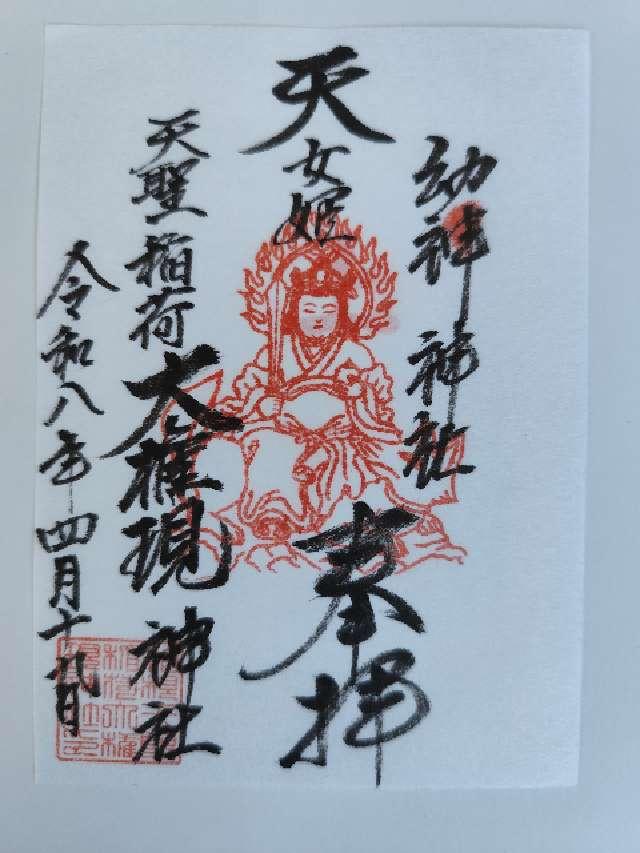 幼神神社
奉拝
天女姫
天聖稲荷大権現神社
令和八年四月十九日